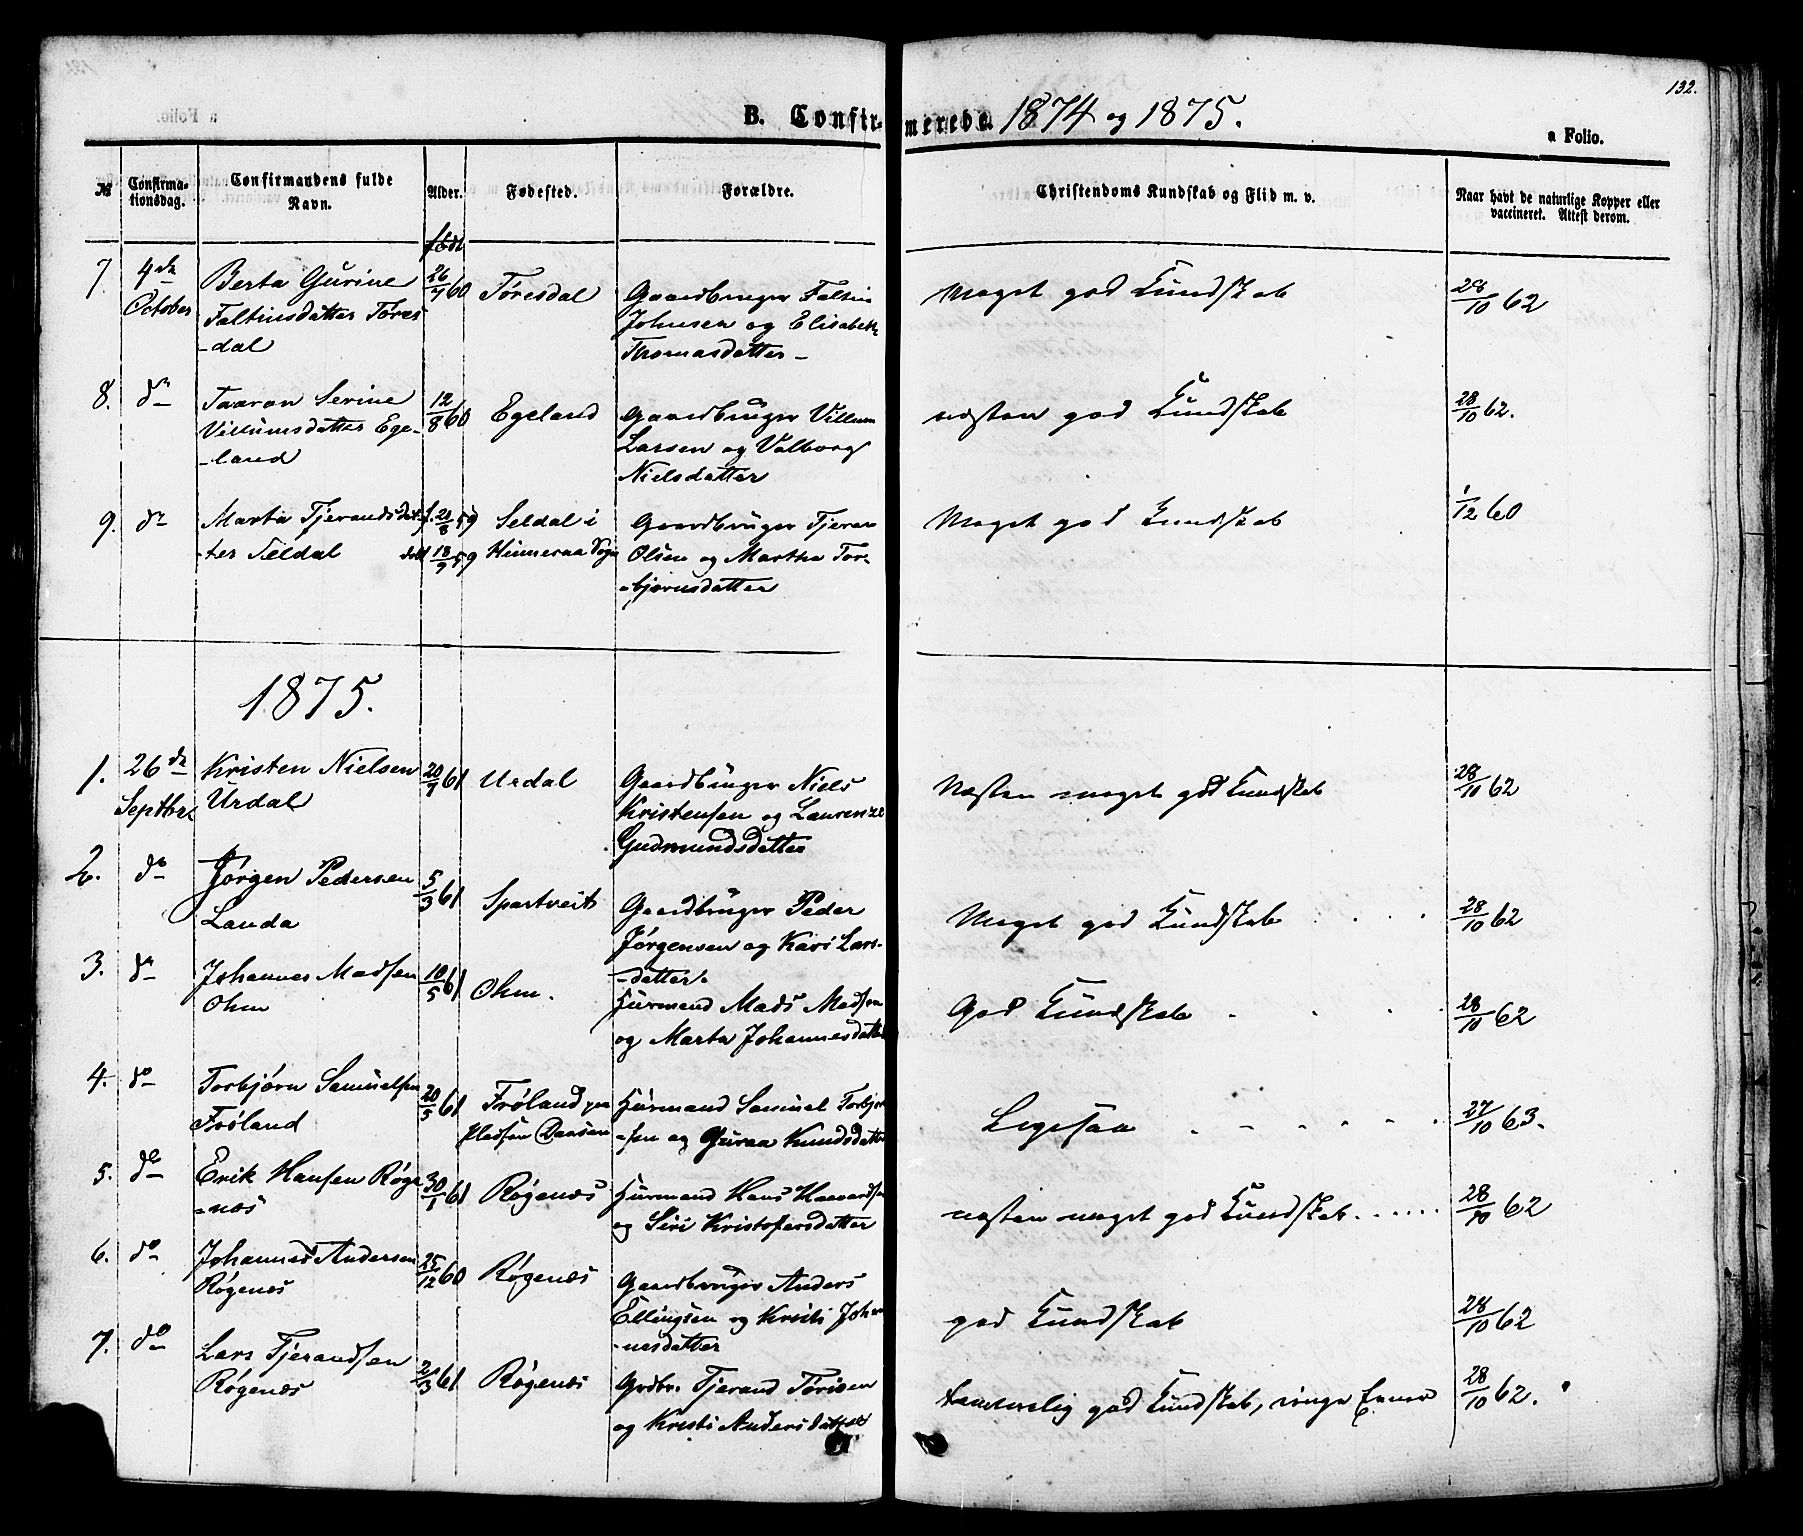 132.
B. Confirmerede. 1874 og 1875.
a Folio.
№
Confirma-
tionsdag.
Confirmandens fulde
Navn.
Alder.
Fødested.
Forældre.
Christendoms Kundskab og Flid m. v.
Naar havt de naturlige Kopper eller
vaccineret. Attest derom.
født
7. 4de October
Berta Gurine
Faltinsdatter Töres
-dal
26/7 60
Töresdal
Gaardbruger Faltin
Johnsen og Elisabeth
Thomasdatter -
Meget god Kundskab
28/10 62
8. do
Taaran Serine
Villumsdatter Ege-
-land
12/8 60
Egeland
Gaardbruger Villum
Larsen og Valborg
Nielsdatter
næsten god Kundskab
28/10 62.
9. do
Marta Tjerandsdat-
-ter Seldal
f. 21/8 59
döbt 18/9 59
Seldal i
Gaardbruger Tjeran
Olsen og Martha Tor-
-bjørnsdatter
Meget god Kundskab
1/12 60
1875.
1. 26de Septbr
Kristen Nielsen
Urdal
20/7 61
Urdal
Gaardbruger Niels
Kristensen og Laurenze
Gudmundsdatter
Næsten meget god Kundskab
28/10 62
2. do
Jørgen Pedersen
Landa
5/3 61
Spartveit
Gaardbruger Peder
Jørgensen og Kari Lars-
-datter.
Meget god Kundskab
28/10 62
3. do
Johannes Madsen
Ohm
10/5 61
Ohm.
Huusmand Mads Madsen
og Marta Johannesdatter
God Kundskab
28/10 62
4. do
Torbjørn Samuelsen
Frøland
20/5 61
Frøland
Pladsen
Huusmand Samuel Torbjør
-sen og Guraa Knudsdatter
Ligesaa
27/10 63.
5. do
Erik Hansen Røge
-næs
30/1 61
Røgenæs
Huusmand Hans Haavardsen
og Siri Kristofersdatter
næsten meget god Kundskab
28/10 62
6. do
Johannes Andersen
Røgenæs
25/12 60
Røgenæs
Gaardbruger Anders
Ellingsen og Kristi Johan
-nesdatter
god Kundskab
28/10 62
7. do
Lars Tjerandsen
Røgenæs
2/3 61
Røgenæs
Grdbr. Tjerand Tørisen
og Kristi Andersdatter
temmelig god Kundskab, ringe Evner
28/10 62.